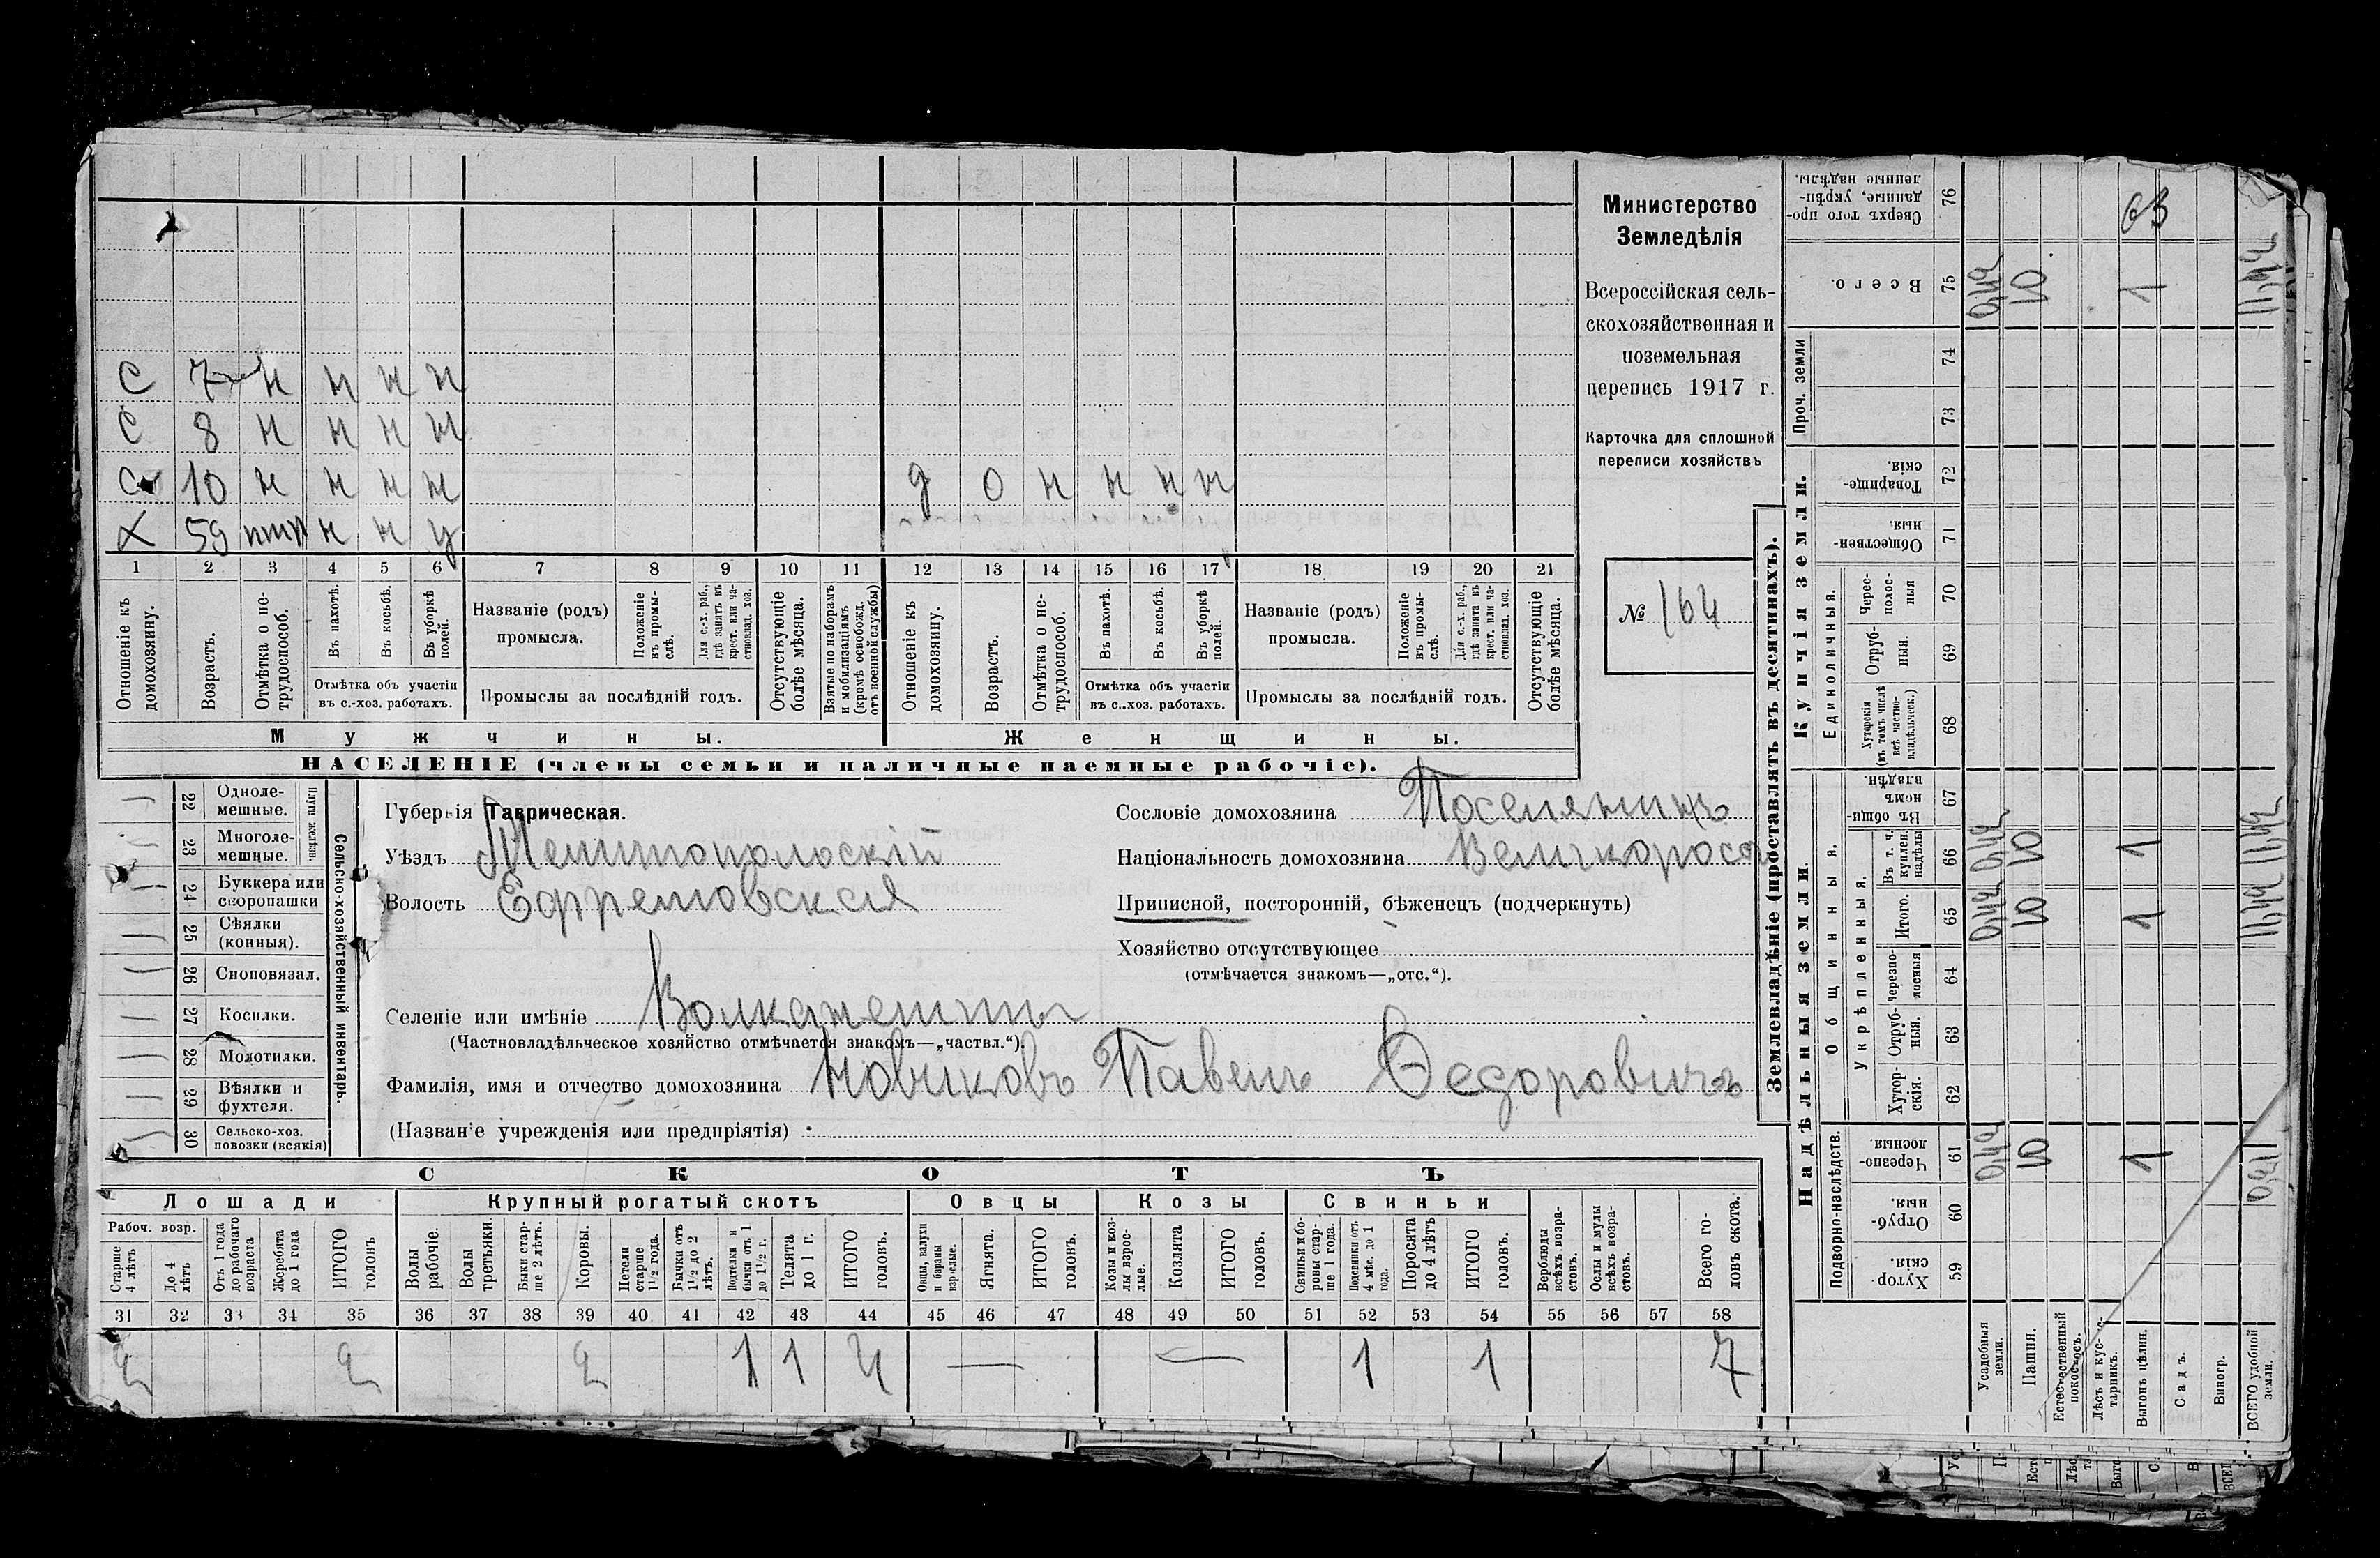 С 7 н н н н
С 8 н н н н
С 10 н н н н д 0 н н н н
Х 59 н н у
1 2 3 4 5 6 7 8 9 10 11 12 13 14 15 16 17 18 19 20 21
Отношеніе къ домохозяину.
Возрастъ.
Отмѣтка о не-трудоспособ.
Въ пахотѣ.
Въ косьбѣ.
Въ уборкѣ полей.
Отмѣтка объ участіи
въ с.-хоз. работахъ.
Названіе (родъ)
промысла.
Положеніе въ промы-слѣ.
Для с.-х. раб., гдѣ занятъ въ крест. или ча-стновлад. хоз.
Промыслы за послѣдній годъ.
Отсутствующіе болѣе мѣсяца.
Взятые по наборамъ и мобилизаціямъ (кромѣ освобожд. отъ военной службы)
Отношеніе къ домохозяину.
Возрастъ.
Отмѣтка о не-трудоспособ.
Въ пахотѣ.
Въ косьбѣ.
Въ уборкѣ полей.
Отмѣтка объ участіи
въ с.-хоз. работахъ.
Названіе (родъ)
промысла.
Положеніе въ промы-слѣ.
Для с.-х. раб., гдѣ занята въ крест. или ча-стновлад. хоз.
Промыслы за послѣдній годъ.
Отсутствующіе болѣе мѣсяца.
Мужчины.
Женщины.
НАСЕЛЕНІЕ (члены семьи и наличные наемные рабочіе).
Министерство
Земледѣлія
Всероссійская сель-
скохозяйственная и
поземельная
перепись 1917 г.
Карточка для сплошной
переписи хозяйствъ
№ 164
22 Одноле-мешные.
23 Многоле-мешные.
Плуги желѣзн.
24 Буккера или скоропашки
25 Сѣялки (конныя).
26 Сноповязал.
27 Косилки.
28 Молотилки.
29 Вѣялки и фухтеля.
30 Сельско-хоз. повозки (всякія)
Сельско-хозяйственный инвентарь.
Губернія Таврическая.
Уѣздъ Мелитопольскій
Волость Ефремовская
Сословіе домохозяина Поселянинъ
Національность домохозяина Великоросъ
Приписной, посторонній, бѣженецъ (подчеркнуть)
Хозяйство отсутствующее
(отмѣчается знакомъ—„отс.“).
Селеніе или имѣніе Волканешты
(Частновладѣльческое хозяйство отмѣчается знакомъ—„частвл.“).
Фамилія, имя и отчество домохозяина Новиковъ Павелъ Ѳедоровичъ
(Названіе учрежденія или предпріятія)
СКОТЪ
Лошади Крупный рогатый скотъ Овцы Козы Свиньи
Рабоч. возр.
Старше 4 лѣтъ
До 4 лѣтъ
Отъ 1 года до рабочаго возраста
Жеребята до 1 года
ИТОГО головъ
Волы рабочіе.
Волы третьяки.
Быки стар-ше 2 лѣтъ.
Коровы.
Нетели старше 1½ года.
Бычки отъ 1½ до 2 лѣтъ.
Подтелки и бычки отъ 1 до 1½ г.
Телята до 1 г.
ИТОГО головъ.
Овцы, валухи и бараны взрослые.
Ягнята.
ИТОГО головъ.
Козы и коз-лы взрос-лые.
Козлята
ИТОГО головъ.
Свиньи и бо-ровы стар-ше 1 года.
Подсвинки отъ 4 мѣс. до 1 года.
Поросята до 4 лѣтъ
ИТОГО головъ.
Верблюды всѣхъ возра-стовъ.
Ослы и мулы всѣхъ возра-стовъ.
Всего го-ловъ скота.
31 32 33 34 35 36 37 38 39 40 41 42 43 44 45 46 47 48 49 50 51 52 53 54 55 56 57 58
2 2 2 1 1 4 — — 1 1 7
Землевладѣніе (проставлять въ десятинахъ).
Купчія земли.
Надѣльныя земли.
Сверхъ того про-данные, укрѣп-ленные надѣлы. 76
Всего. 75 0,42 10 1 11,42
Проч. земли 74
73
Товарище-скія. 72
Обществен-ныя. 71
Единоличныя.
Черес-полос-ныя 70
Отруб-ныя. 69
Хуторскія (въ томъ числѣ всѣ частно-владѣльческ.) 68
Общинныя.
Въ общи-номъ владѣн. 67
Укрѣпленныя.
Въ т. ч. куплен. надѣлы 66 0,42 10 1 11,42
Итого. 65 0,42 10 1 11,42
Черезпо-лосныя 64
Отруб-ныя. 63
Хутор-скія. 62
Подворно-наслѣдств.
Черезпо-лосныя. 61 0,42 10 1
Отруб-ныя. 60
Хутор-скія. 59
Усадебныя земли.
Пашня.
Естественный покосность.
Лѣсъ и кус-тарникъ.
Выгонъ цѣлин.
Садъ.
Виногр.
ВСЕГО удобной земли.